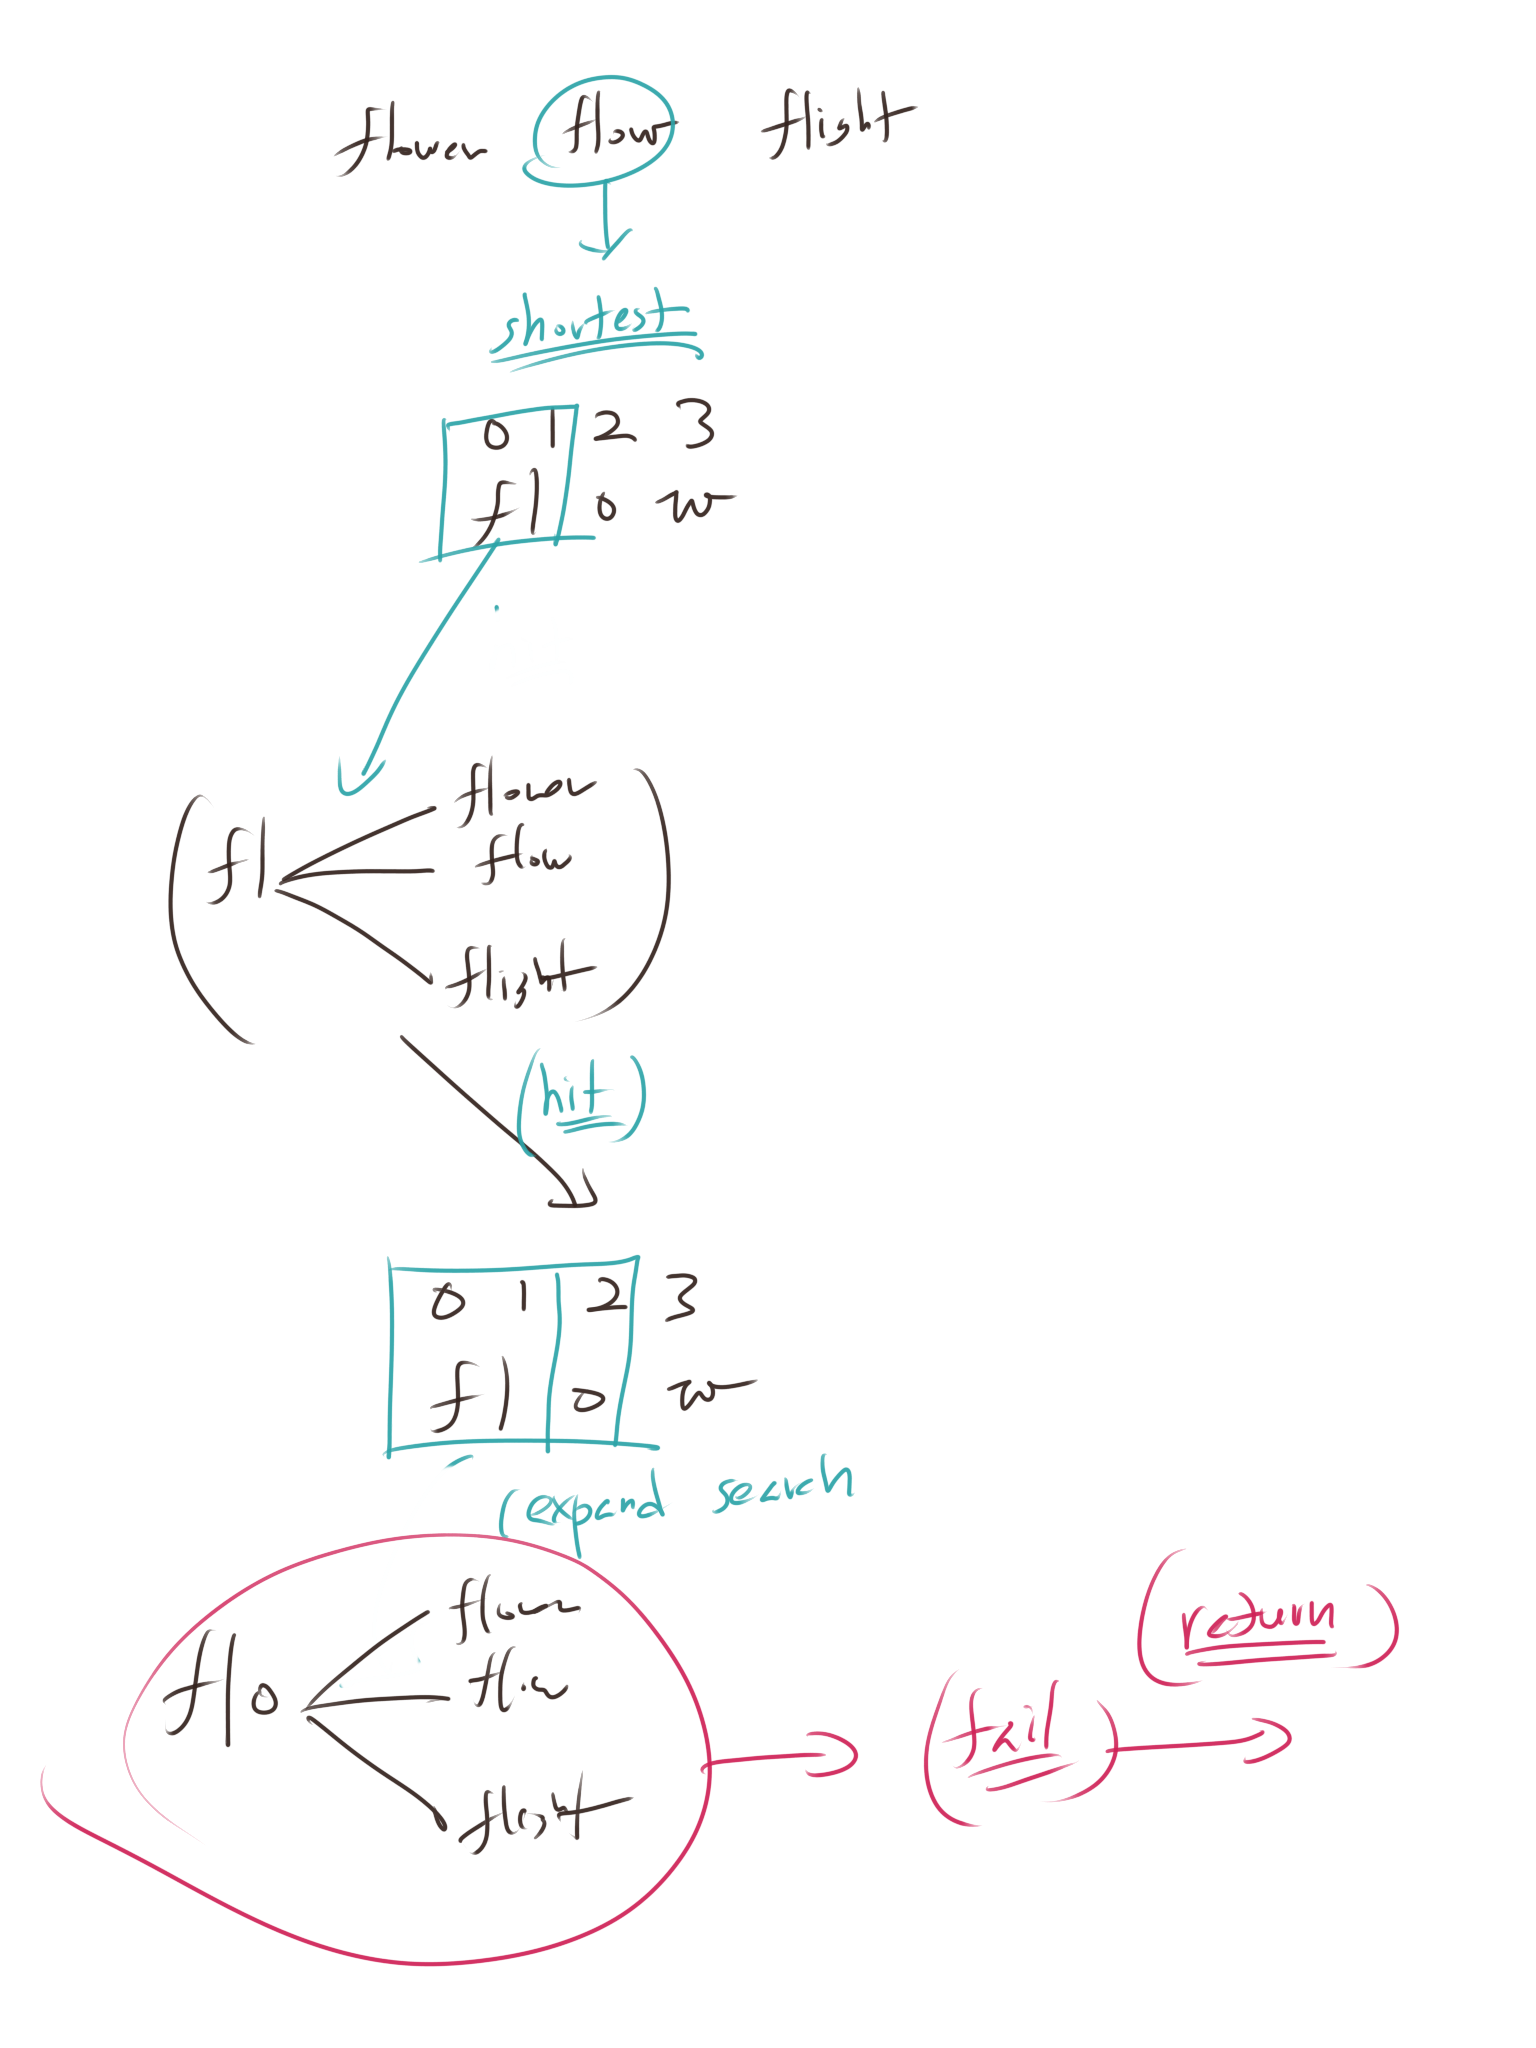 flower flow flight
shortest
0 1 2 3
f l o w
fl
flower
flow
flight
(hit)
0 1 2 3
f l o w
(expand search
flo
flower
flow
flight
(fail)
(return)